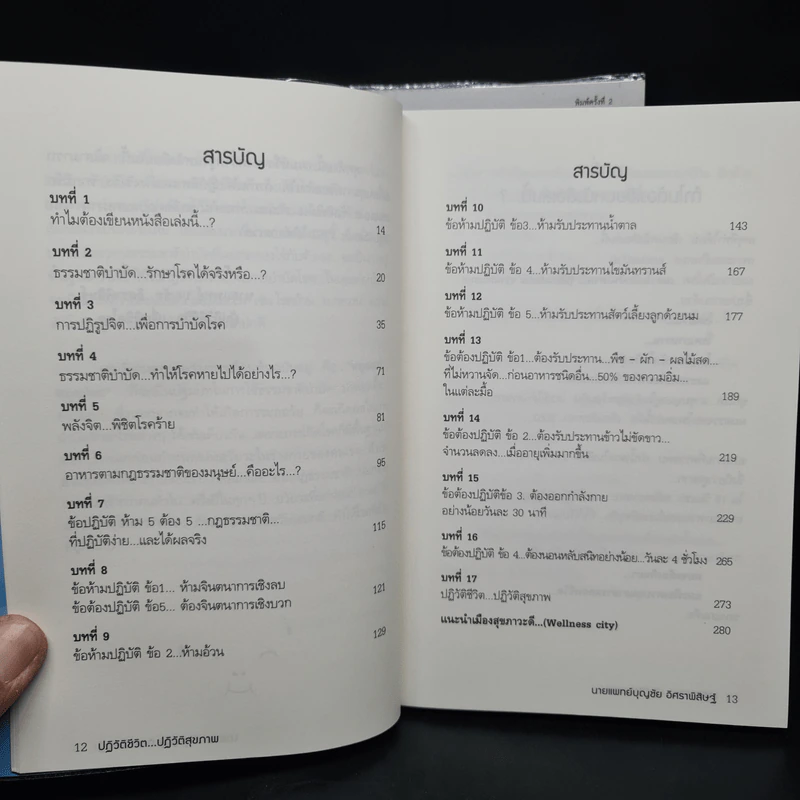 พิมพ์ครั้งที่ 2
สารบัญ
บทที่ 1
ทำไมต้องเขียนหนังสือเล่มนี้...? 14
บทที่ 2
ธรรมชาติบำบัด...รักษาโรคได้จริงหรือ...? 20
บทที่ 3
การปฏิรูปจิต...เพื่อการบำบัดโรค 35
บทที่ 4
ธรรมชาติบำบัด...ทำให้โรคหายไปได้อย่างไร...? 71
บทที่ 5
พลังจิต...พิชิตโรคร้าย 81
บทที่ 6
อาหารตามกฎธรรมชาติของมนุษย์...คืออะไร...? 95
บทที่ 7
ข้อปฏิบัติ ห้าม 5 ต้อง 5 ...กฎธรรมชาติ...
ที่ปฏิบัติง่าย...และได้ผลจริง 115
บทที่ 8
ข้อห้ามปฏิบัติ ข้อ1... ห้ามจินตนาการเชิงลบ
ข้อต้องปฏิบัติ ข้อ5... ต้องจินตนาการเชิงบวก 121
บทที่ 9
ข้อห้ามปฏิบัติ ข้อ 2...ห้ามอ้วน 129
12 ปฏิวัติชีวิต...ปฏิวัติสุขภาพ
สารบัญ
บทที่ 10
ข้อห้ามปฏิบัติ ข้อ3...ห้ามรับประทานน้ำตาล 143
บทที่ 11
ข้อห้ามปฏิบัติ ข้อ 4...ห้ามรับประทานไขมันทรานส์ 167
บทที่ 12
ข้อห้ามปฏิบัติ ข้อ 5...ห้ามรับประทานสัตว์เลี้ยงลูกด้วยนม 177
บทที่ 13
ข้อต้องปฏิบัติ ข้อ1...ต้องรับประทาน...พืช - ผัก - ผลไม้สด...
ที่ไม่หวานจัด...ก่อนอาหารชนิดอื่น...50% ของความอิ่ม...
ในแต่ละมื้อ 189
บทที่ 14
ข้อต้องปฏิบัติ ข้อ 2...ต้องรับประทานข้าวไม่ขัดขาว...
จำนวนลดลง...เมื่ออายุเพิ่มมากขึ้น 219
บทที่ 15
ข้อต้องปฏิบัติข้อ 3. ต้องออกกำลังกาย
อย่างน้อยวันละ 30 นาที 229
บทที่ 16
ข้อต้องปฏิบัติ ข้อ 4...ต้องนอนหลับสนิทอย่างน้อย...วันละ 4 ชั่วโมง 265
บทที่ 17
ปฏิวัติชีวิต...ปฏิวัติสุขภาพ 273
แนะนำเมืองสุขภาวะดี...(Wellness city) 280
นายแพทย์บุญชัย อิศราพิสิษฐ์ 13